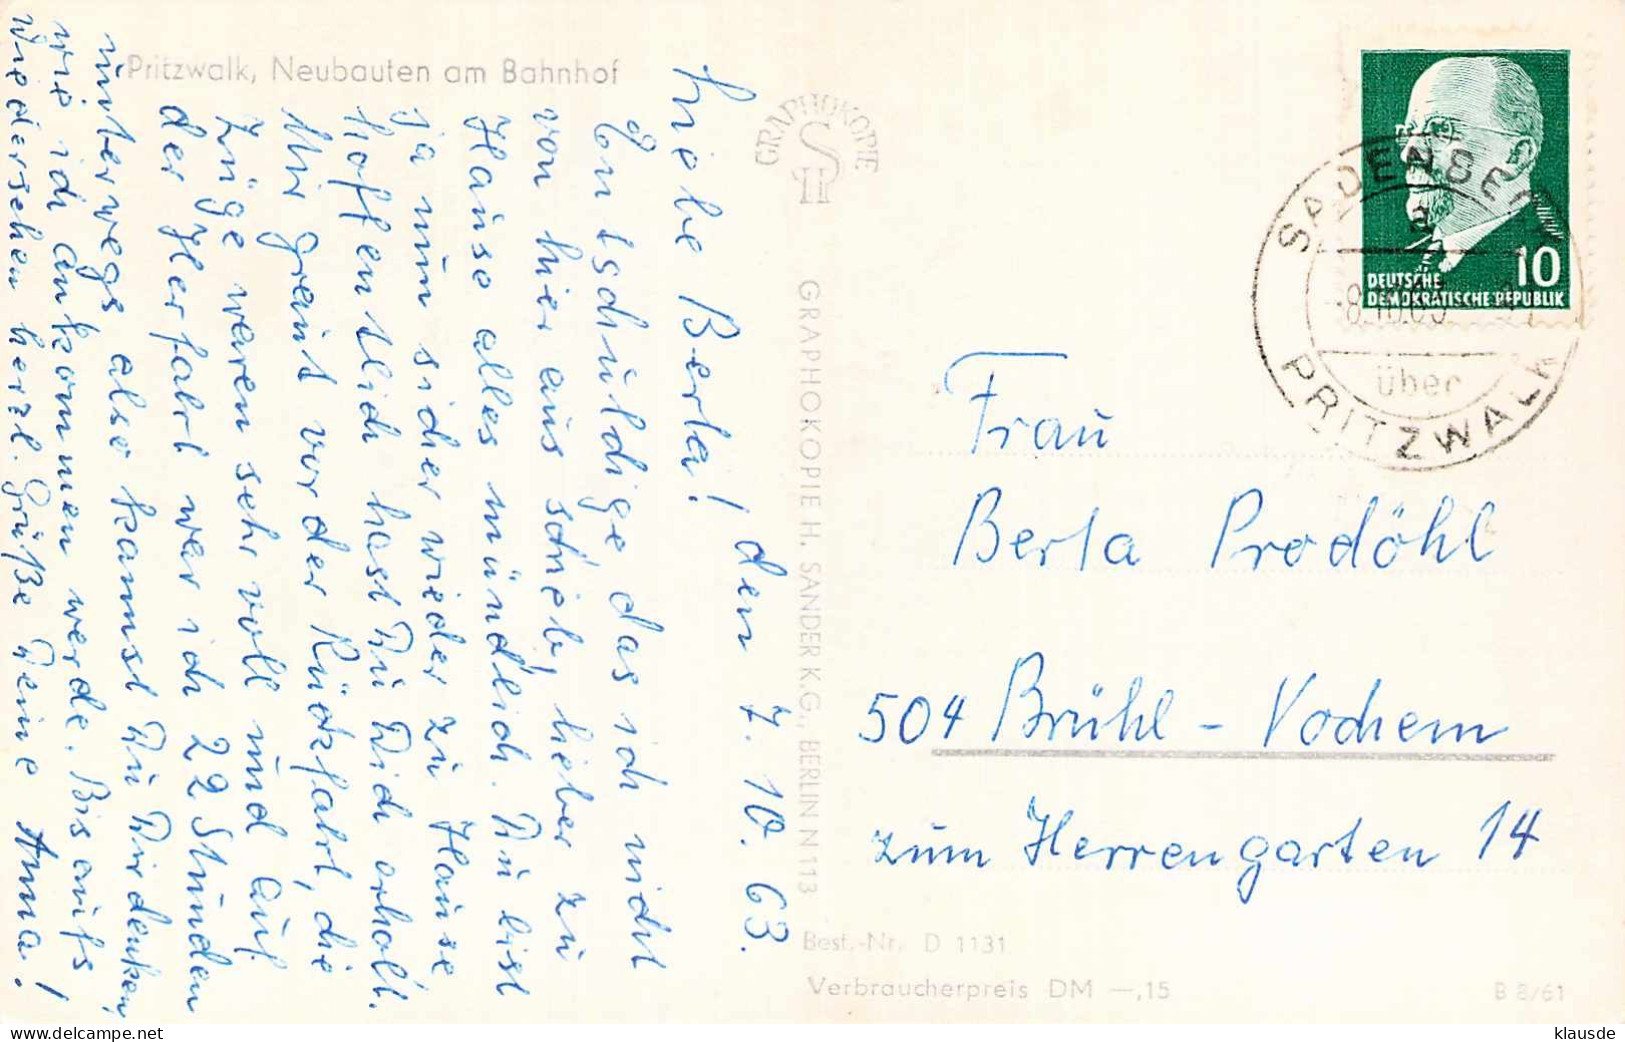 Pritzwalk, Neubauten am Bahnhof
den 7. 10. 63.
Liebe Berta!
Entschuldige das ich nicht
von hier aus schrieb, lieber zu
Hause alles mündlich. Du bist
ja nun sicher wieder zu Hause,
hoffentlich hast Du Dich erholt.
Mir graut vor der Rückfahrt, die
Züge waren sehr voll und auf
der Herfahrt war ich 22 Stunden
unterwegs also kannst Du Dir denken,
wie ich ankommen werde. Bis aufs
Wiedersehen herzl. Grüße Deine Anna!
GRAPHOKOPIE
H
S
GRAPHOKOPIE H. SANDER K.G., BERLIN N 113
DEUTSCHE
DEMOKRATISCHE REPUBLIK
10
SADENBECK
a
über
PRITZWALK
Frau
Berta Prodöhl
504 Brühl - Vochem
zum Herrengarten 14
Best.-Nr. D 1131
Verbraucherpreis DM —,15
B 8/61
www.delcampe.net
klausde